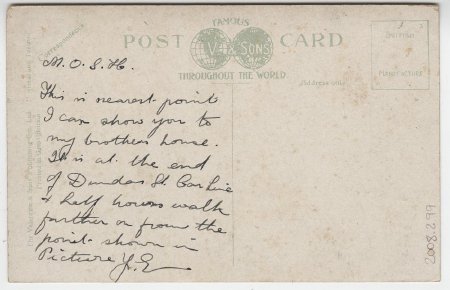 FAMOUS
POST CARD
V & SONS
THROUGHOUT THE WORLD
Correspondence.
Address only.
BRITISH
MANUFACTURE
M. O. S. H.
This is nearest point
I can show you to
my brothers house.
It is at the end
of Dundas St. Car line
+ half hours walk
further on from the
point shown in
Picture J. E
2008.299